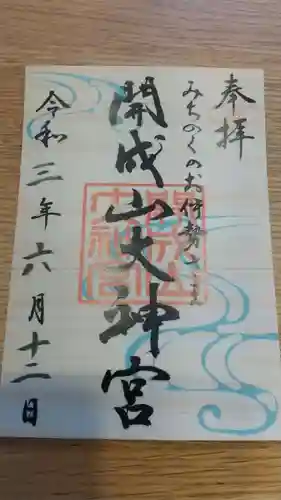 奉拝
みちのくのお伊勢さま
開成山大神宮
令和三年六月十二日